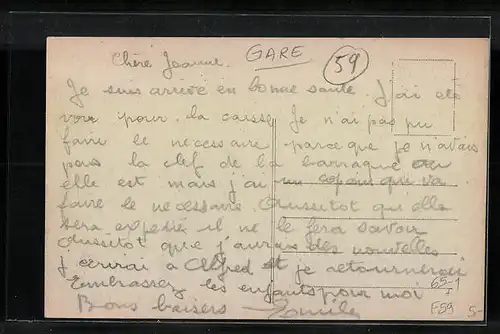 GARE
59
Chère Jeanne.
Je suis arrivé en bonne santé. J'ai été
voir pour la caisse Je n'ai pas pu
faire le necessaire parce que je n'avais
pas la clef de la barraque ou
elle est mais j'ai un copain qui va
faire le necessaire. Aussitot qu'elle
sera expediée il me le fera savoir
Aussitot que j'aurais des nouvelles
j'ecrirai à Alfred et je retournerai
Embrassez les enfants pour moi
Bons baisers Emile
65-1
F59
5-